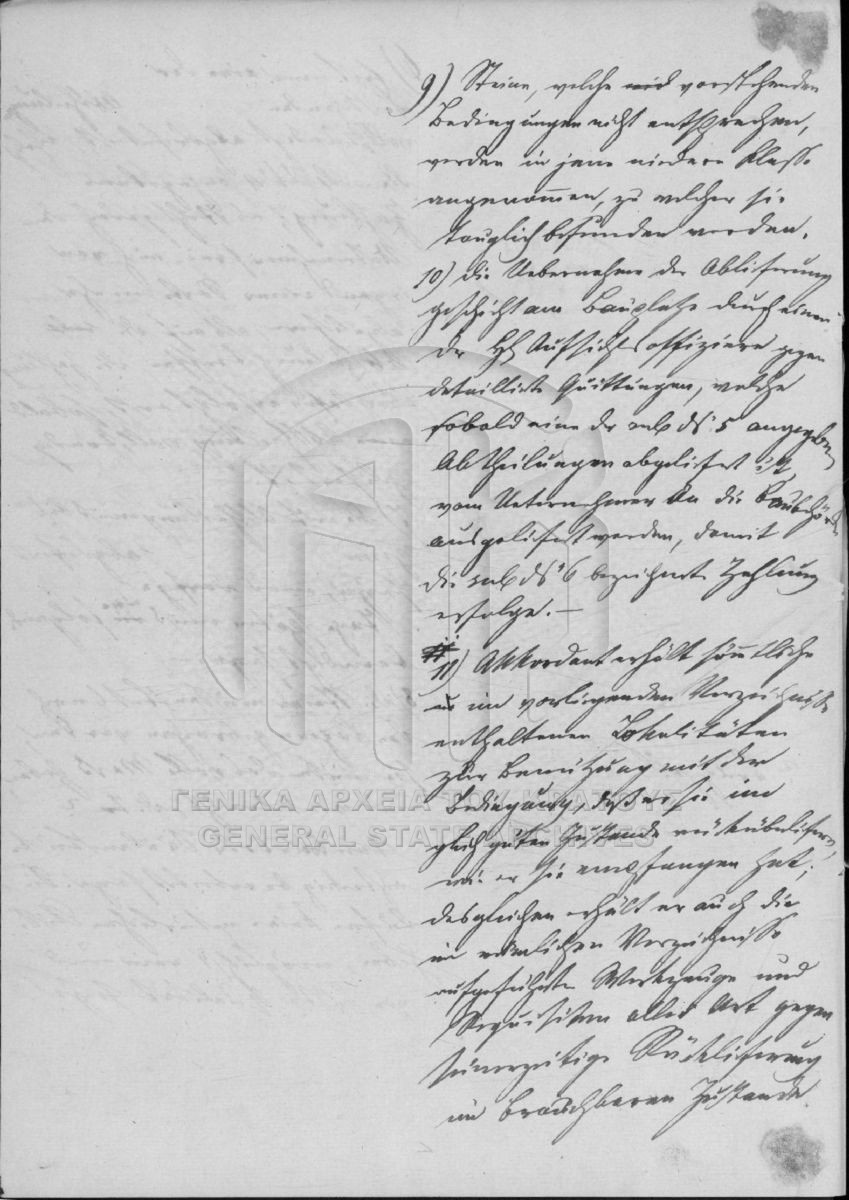 9) Steine, welche vorstehenden
Bedingungen nicht entsprechen,
werden in jene niedere Klasse
angenommen, zu welcher sie
tauglich befunden werden.
10) Die Uebernahme der Ablieferung
geschieht am Bauplatze durch einen
der HH Aufsichtsoffiziere gegen
detaillirte Quittungen, welche
sobald eine der sub No 5 angegeben
Abtheilungen abgeliefert ist,
vom Unternehmer an die Baubehörde
ausgeliefert werden, damit
die sub No 6 bezeichnete Zahlung
erfolge. —
11) Akkordant erhält sämtliche
im vorliegenden Verzeichnisse
enthaltenen Lokalitäten
zur Benützung mit der
Bedingung, daß er sie im
gleich guten Zustande rücküberliefere,
wie er sie empfangen hat;
desgleichen erhält er auch die
im nämlichen Verzeichnisse
aufgeführten Werkzeuge und
Requisiten aller Art gegen
seinerzeitige Rücklieferung
im brauchbaren Zustande.
ΓΕΝΙΚΑ ΑΡΧΕΙΑ ΤΟΥ ΚΡΑΤΟΥΣ
GENERAL STATE ARCHIVES